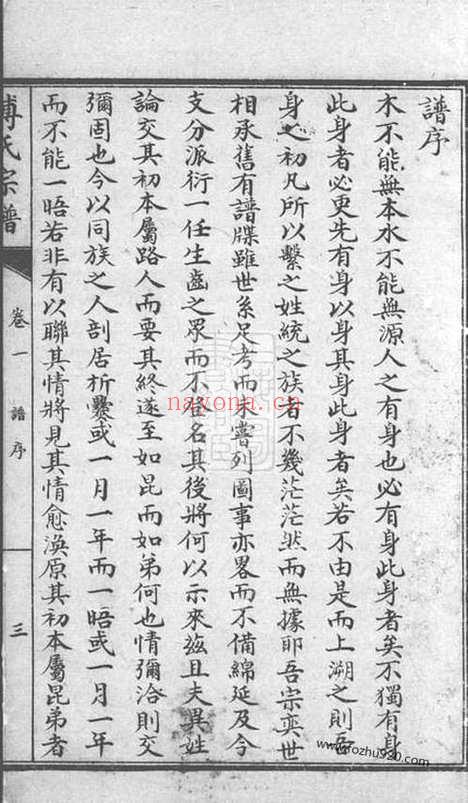 譜序
木不能無本水不能無源人之有身也必有身此身者矣不獨有身
此身者必更先有身以身其身此身者矣若不由是而上溯之則吾
身之初凡所以繫之姓統之族者不幾茫茫然而無據耶吾宗奕世
相承舊有譜牒雖世系足考而未嘗列圖事亦畧而不備綿延及今
支分派衍一任生齒之眾而不登名其後將何以示來茲且夫異姓
論交其初本屬路人而要其終遂至如昆而如弟何也情彌洽則交
彌固也今以同族之人剖居析爨或一月一年而一晤或一月一年
而不能一晤若非有以聯其情將見其情愈渙原其初本屬昆弟者
傅氏宗譜
卷一
譜序
三
nayona.cn
www.fozhu920.com